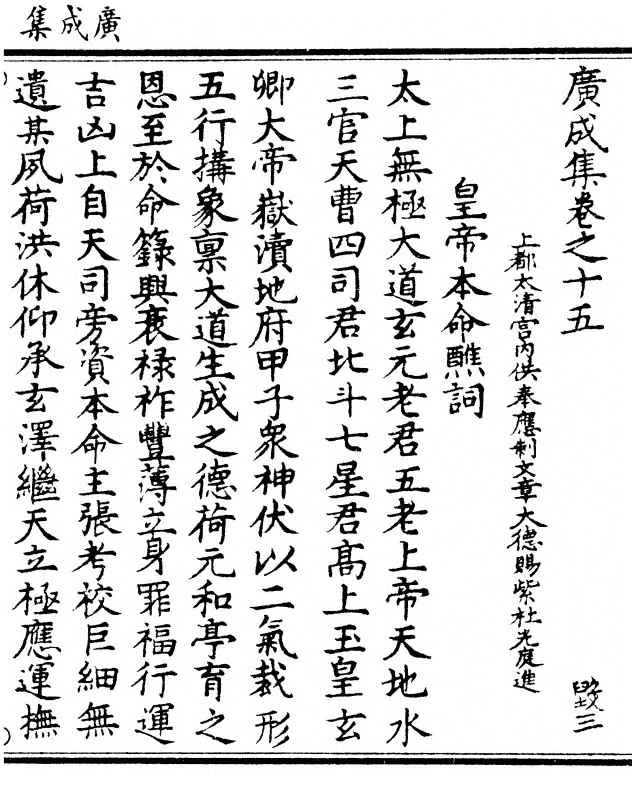 廣成集
廣成集卷之十五
毀三
上都太清宮內供奉應制文章大德賜紫杜光庭進
皇帝本命醮詞
太上無極大道玄元老君五老上帝天地水
三官天曹四司君北斗七星君高上玉皇玄
卿大帝嶽瀆地府甲子衆神伏以二氣裁形
五行搆象稟大道生成之德荷元和亭育之
恩至於命籙興衰祿祚豐薄立身罪福行運
吉凶上自天司旁資本命主張考校巨細無
遺某夙荷洪休仰承玄澤繼天立極應運撫